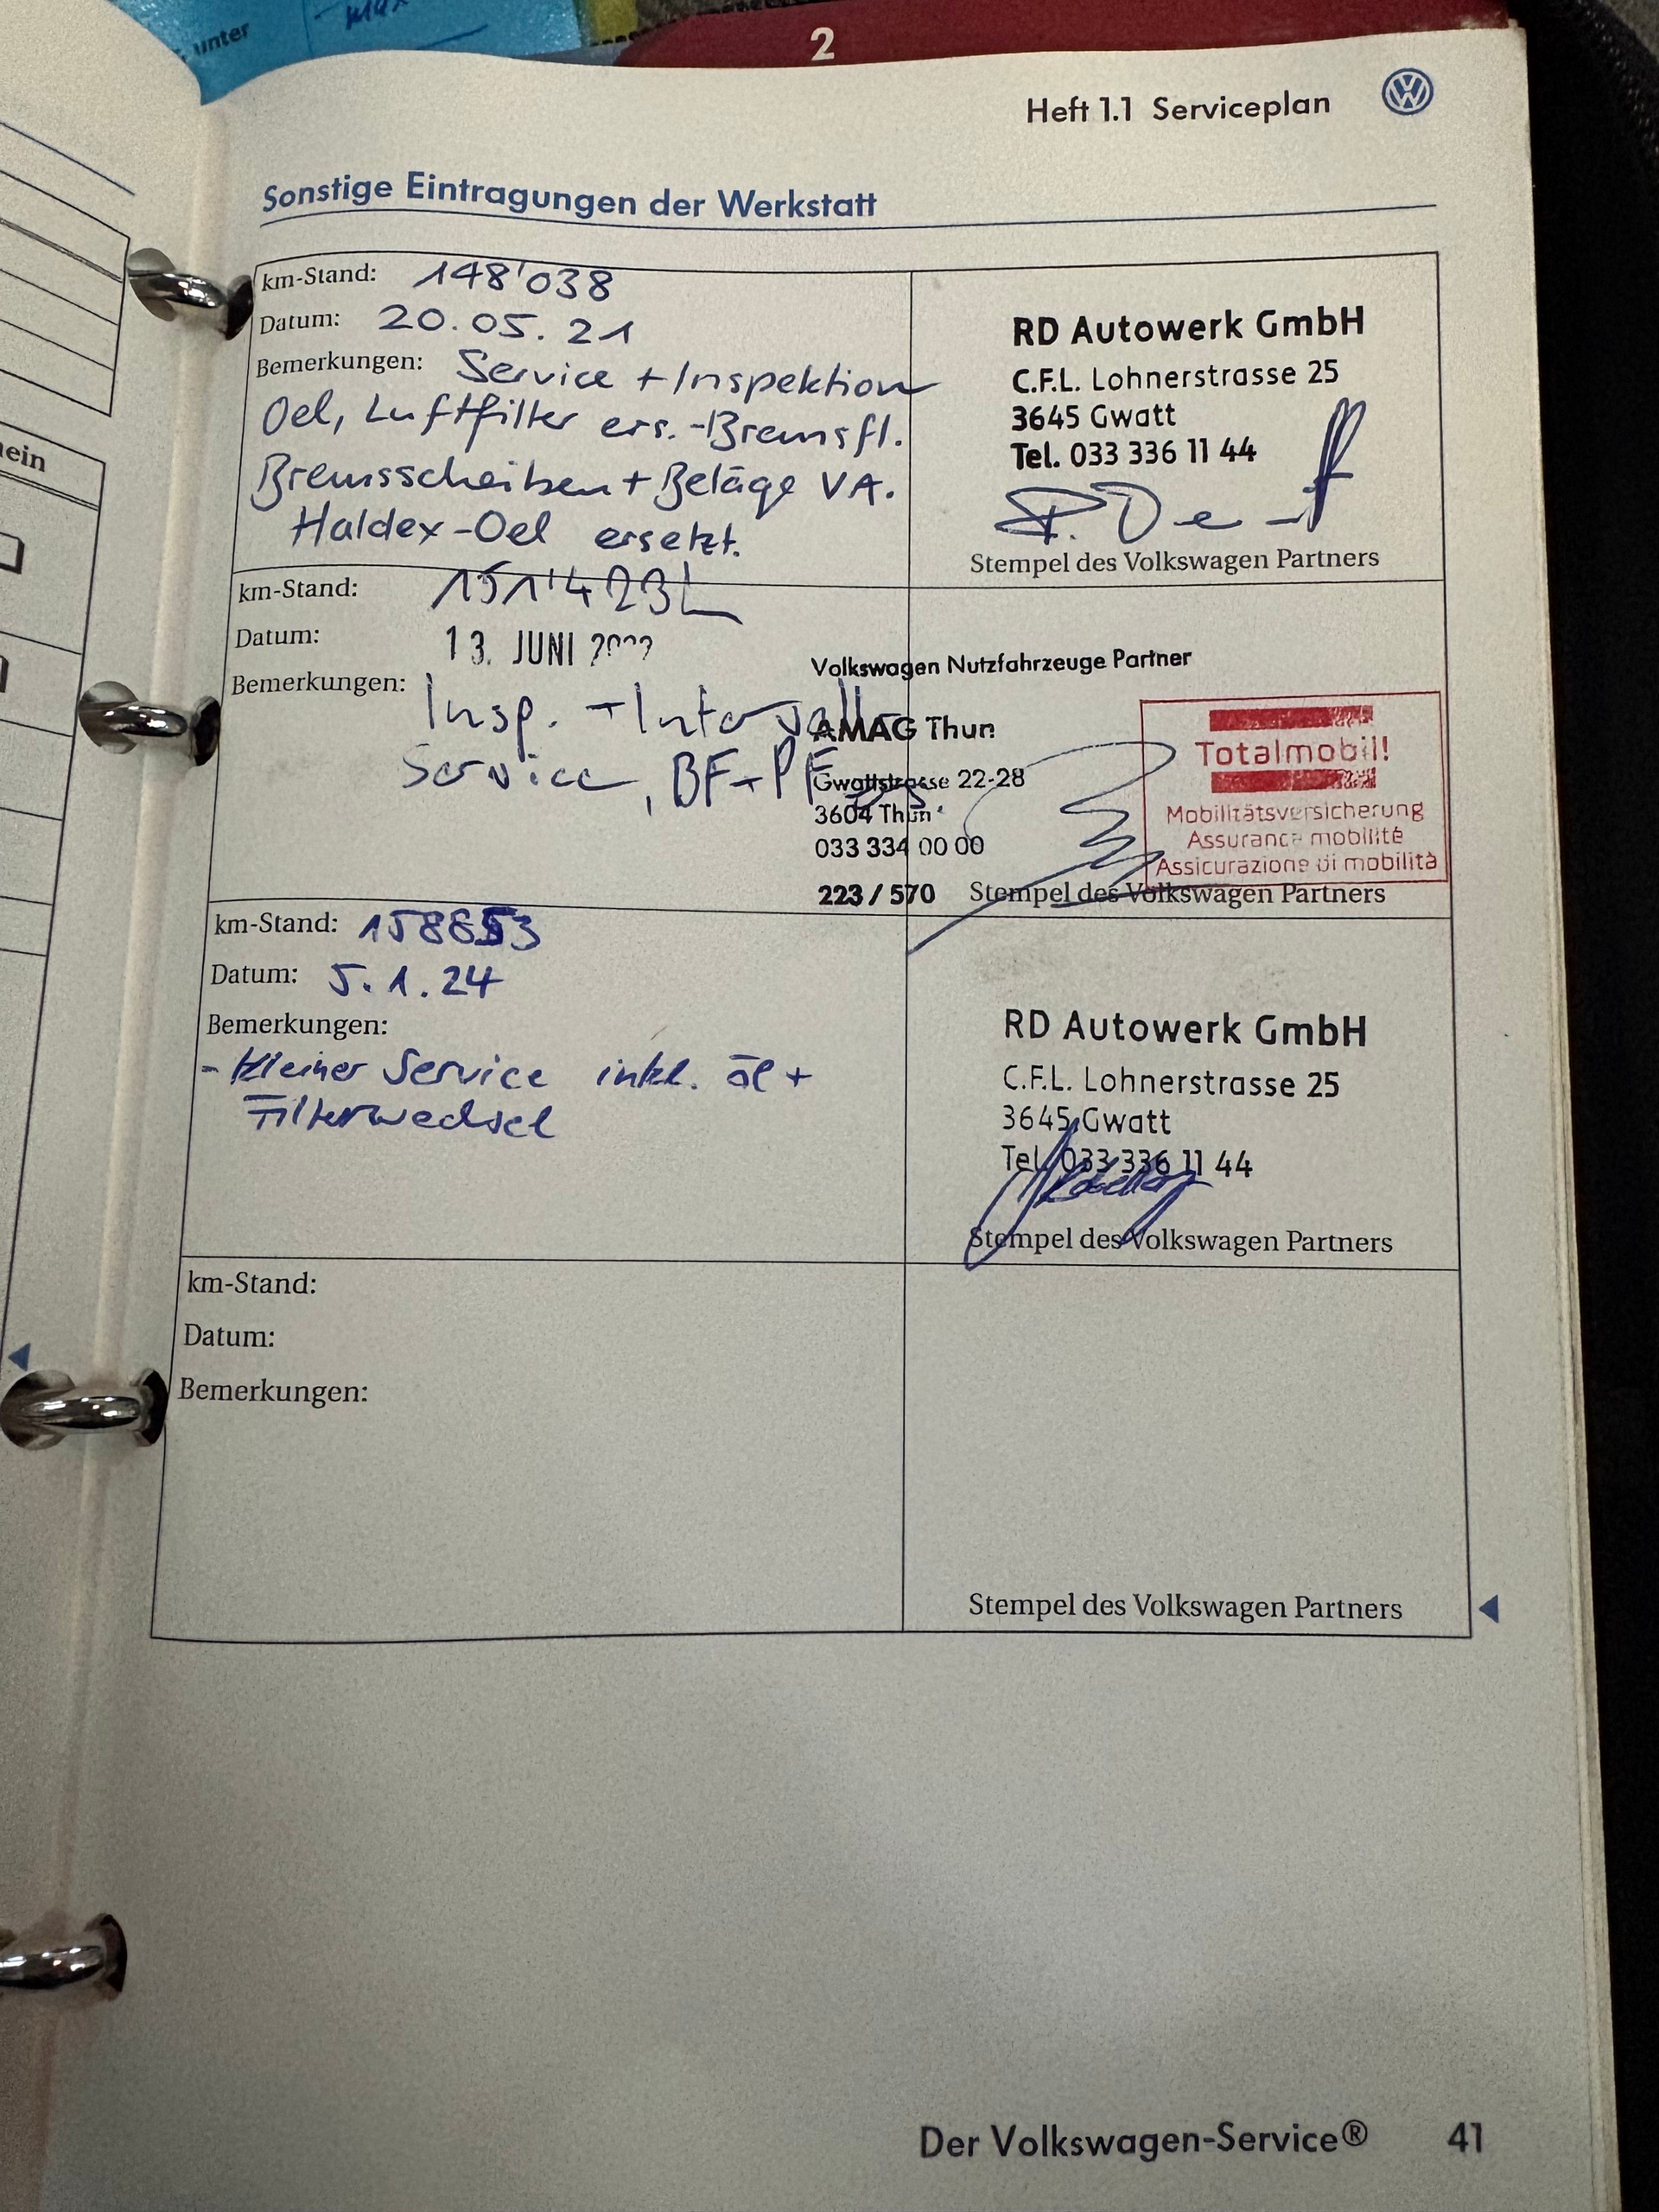 unter
max
2
Heft 1.1 Serviceplan
Sonstige Eintragungen der Werkstatt
km-Stand: 148'038
Datum: 20.05.21
Bemerkungen: Service + Inspektion
Oel, Luftfilter ers. -Bremsfl.
Bremsscheiben + Beläge VA.
Haldex-Oel ersetzt.
RD Autowerk GmbH
C.F.L. Lohnerstrasse 25
3645 Gwatt
Tel. 033 336 11 44
Stempel des Volkswagen Partners
km-Stand: 151'423
Datum: 13. JUNI
Bemerkungen: Insp. + Intervall
Service, BF + PF
Volkswagen Nutzfahrzeuge Partner
AMAG Thun
Gwattstrasse 22-28
3604 Thun
033 334 00 00
223 / 570
Totalmobil!
Mobilitätsversicherung
Assurance mobilité
Assicurazione di mobilità
Stempel des Volkswagen Partners
km-Stand:
Datum: 5.1.24
Bemerkungen:
- Kleiner Service inkl. öl +
Filterwechsel
RD Autowerk GmbH
C.F.L. Lohnerstrasse 25
3645 Gwatt
Tel. 033 336 11 44
Stempel des Volkswagen Partners
km-Stand:
Datum:
Bemerkungen:
Stempel des Volkswagen Partners
Der Volkswagen-Service® 41